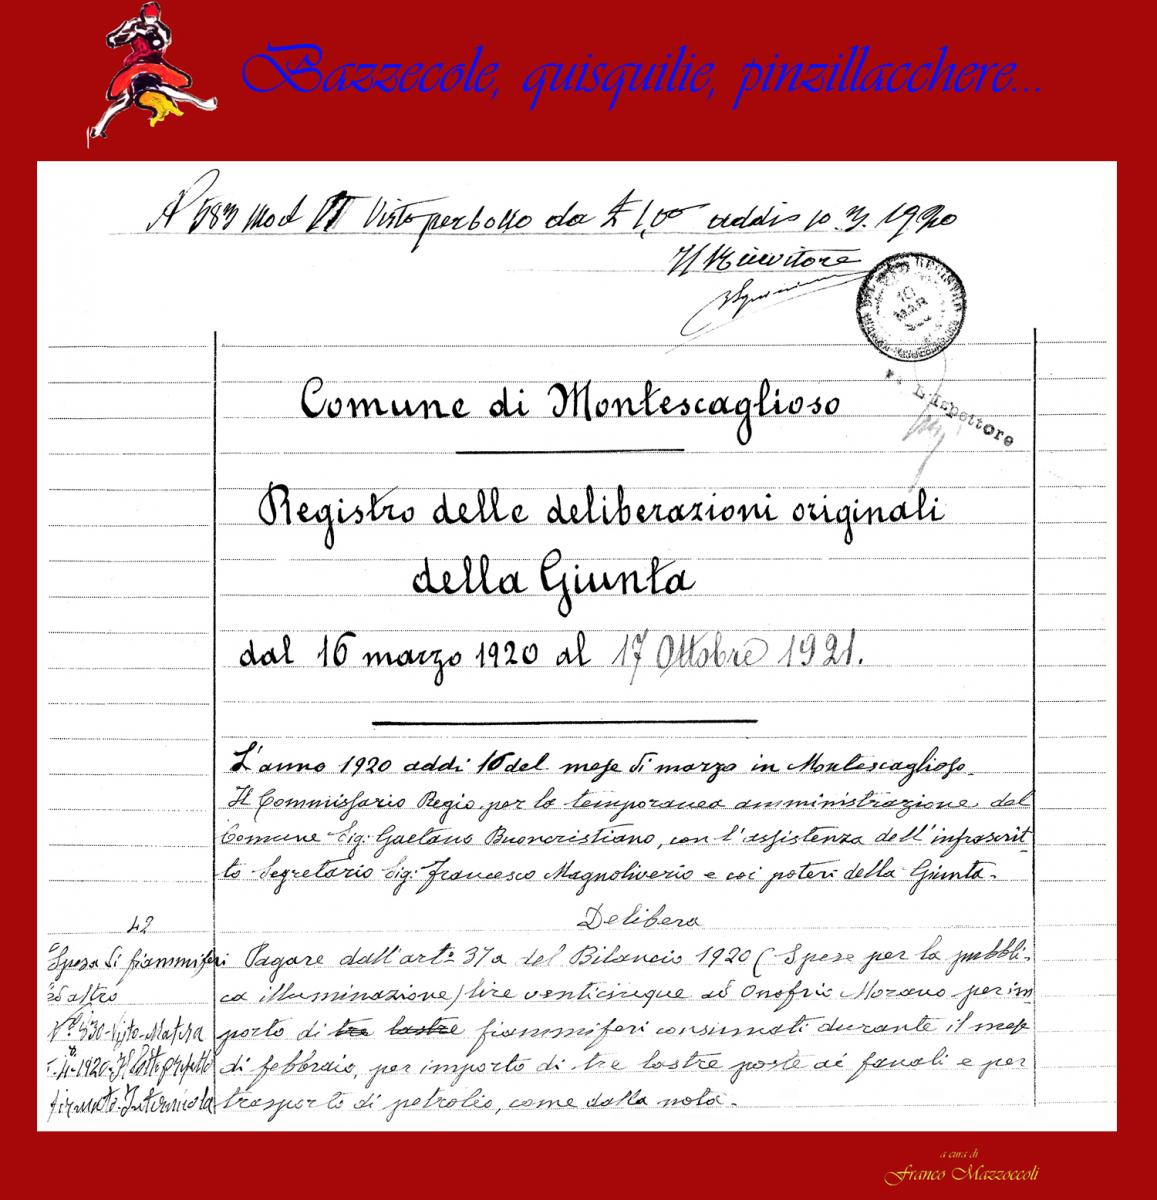 Bazzecole, quisquilie, pinzillacchere...
N 583 Mod II Visto per bollo da £ 1,00 addì 10.3.1920
Il Ricevitore
10
MAR
L'Ispettore
Comune di Montescaglioso
Registro delle deliberazioni originali
della Giunta
dal 16 marzo 1920 al 17 Ottobre 1921.
L'anno 1920 addì 16 del mese di marzo in Montescaglioso.
Il Commissario Regio per la temporanea amministrazione del
Comune Sig: Gaetano Buoncristiano, con l'assistenza dell'infrascrit-
to Segretario Sig: Francesco Magnoliverio e coi poteri della Giunta.
Delibera
42
Spesa di fiammiferi
ed altro
N° 530 - Visto - Matera
4-1920 - Il Sottoprefetto
firmato
Pagare dall'art: 37a del Bilancio 1920 (Spese per la pubbli-
ca illuminazione) lire venticinque ad Onofrio Morano per im
porto di tre lastre fiammiferi consumati durante il mese
di febbraio, per importo di tre lastre poste ai fanali e per
trasporto di petrolio, come dalla nota.
a cura di
Franco Mazzoccoli